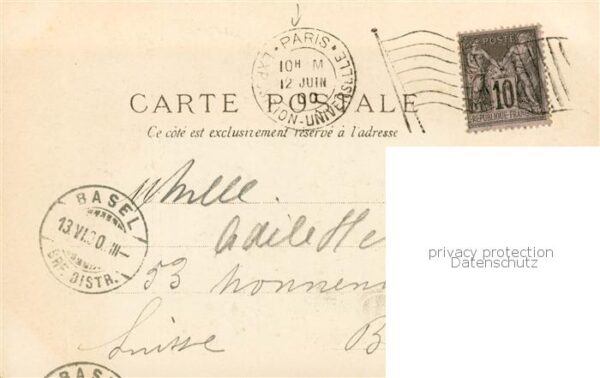 PARIS
EXPOSITION-UNIVERSELLE
10H M
12 JUIN
00
POSTE
10
REPUBLIQUE FRANC
CARTE POSTALE
Ce côté est exclusivement réservé à l'adresse
Mlle.
Adele He
53 Nonnen
Suisse B
BASEL
13.VI.00.III-
BRF. DISTR.
BASEL
privacy protection
Datenschutz